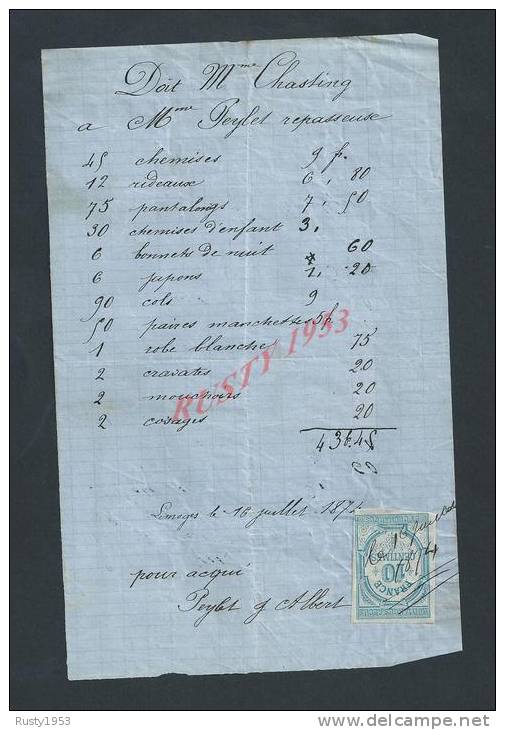 Doit Mme Chasting
a Mme Peylet repasseuse
45 chemises 9 fr.
12 rideaux 6, 80
75 pantalongs 7, 50
30 chemises d'enfant 3,
6 bonnets de nuit 60
6 jupons 1, 20
90 cols 9
50 paires manchettes 5f
1 robe blanche 75
2 cravates 20
2 mouchoirs 20
2 corages 20
43f.45
Limoges le 16 juillet 1874
pour acqui
Peylet j Albert
le 16 juillet
1874
10
CENTIMES
FRANCE
RUSTY 1953
Rusty1953
www.delcampe.net